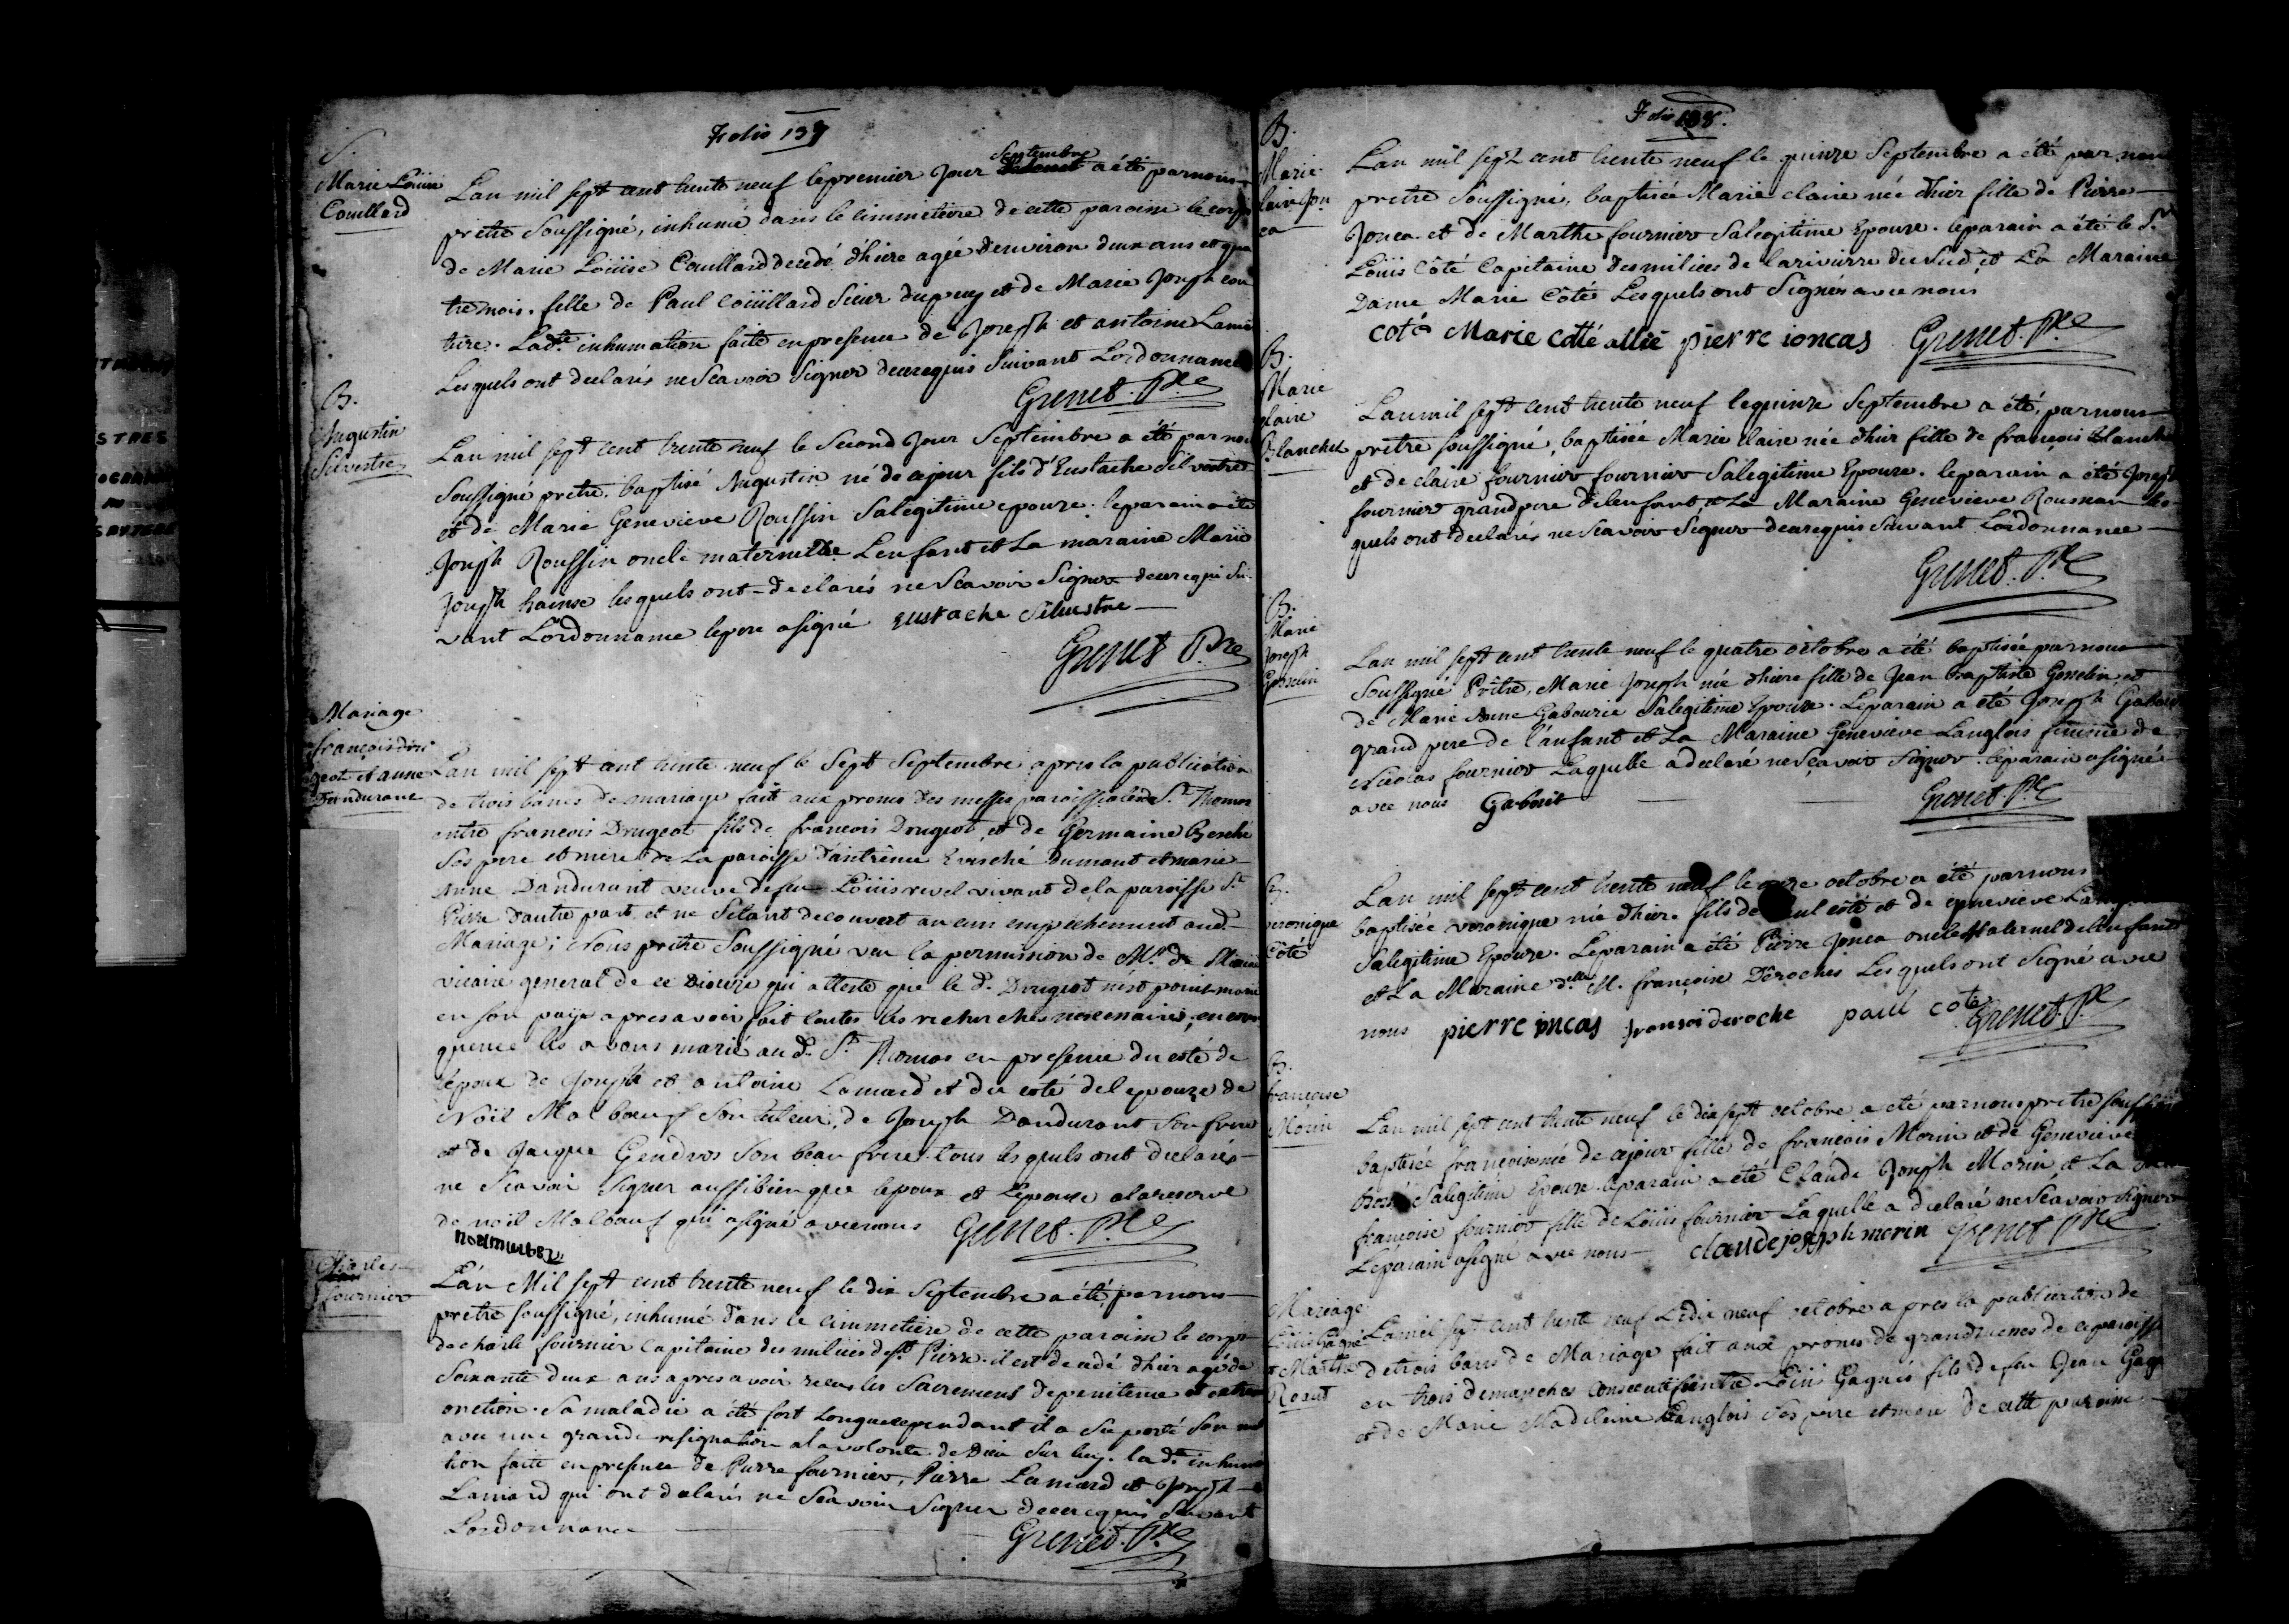 Folio 137
S.
Marie Loüise
Couillard
Lan mil sept cent trente neuf le premier Jour Septembre a été par nous
prêtre Soussigné, inhumé dans le cimmetiere de cette paroisse le corps
de Marie Loüise Couillard decedé d'hiere agée denviron deux ans et qua
tre mois. fille de Paul Coüillard Sieur dupuy et de Marie Joseph cou
ture. Ladte. inhumation faite en presence de Joseph et antoine Lamar
Lesquels ont declarés ne Scavoir Signer de ce requis Suivant Lordonnance
Grenet. Ptre
B.
Augustin
Silvestre
Lan mil sept cent trente neuf le Second Jour Septembre a été par nous
Soussigné prêtre. baptisé Augustin né de ce jour fils d'Eustache Silvestre
et de Marie Genevieve Roussin Sa legitime epouze. le parain a été
Joseph Roussin oncle maternel de L'enfant et La maraine Marie
Joseph hainse lesquels ont declarés ne Scavoir Signer de ce requi Sui
vant Lordonnance le pere a signé eustache Silvestre
Grenet Ptre
Mariage
françois dru
geot et anne
Dandurant
Lan mil sept cent trente neuf le Sept Septembre apres la publication
de trois bancs de mariage fait aux prones des messes paroissiales de St. Thomas
entre francois Drugeot fils de francois Drugeot, et de Germaine Besché
Ses pere et mere de La paroisse d'aintrême Evêsché dumont et marie
Anne Dandurant veuve de feu Loüis revel vivant de la paroisse St.
Pierre d'autre part et ne S'etant decouvert aucun empechement aud.
Mariage; Nous prêtre Soussigné veu la permission de Mr. de
vicaire general de ce Diocèze qui atteste que le d. Drugeot n'est point marié
en son païs apres avoir fait toutes les recherches necessaires; en conse
quence les avons marié au d. St. Thomas en presence du coté de
l'époux de Joseph et antoine Lamard et du coté de l epouze de
Noël Malboeuf Son tuteur, de Joseph Dandurant Son frere
et de Jacque Gendros Son beau frere. tous lesquels ont declarés
ne Scavoir Signer aussi bien que lepoux et l'epouse a la reserve
de noël Malbeauf qui a signé avec nous Grenet. Ptre
noelmulbeu
Charles
fournier
L'an Mil sept cent trente neuf le dix Septembre a été par nous
prêtre soussigné, inhumé dans le cimmetiere de cette paroisse le corps
de charle fournier Capitaine des milices de St. Pierre. il est decedé d'hier agé de
Soixante deux ans apres avoir receu les Sacremens de penitence et extreme
onction. Sa maladie a été fort Longue cependant il a Suporté Son mal
avec une grande resignation a la volonte de Dieu Sur luy. la dte. inhuma
tion faite en presence de Pierre fournier, Pierre Lamard et Joseph
Lamard qui ont declarés ne Scavoir Signer de ce requis Suivant
Lordonnance
Grenet. Ptre
Folio 138.
B.
Marie
claire Jon
ca
Lan mil sept cent trente neuf le quinze Septembre a été par nous
prêtre Soussigné, baptisée Marie claire née d'hier fille de Pierre
Jonca et de Marthe fournier Sa legitime Epouze. le parain a été le Sr.
Loüis Côté Capitaine des milices de la riviere du Sud et La Maraine
Dame Marie Côté Lesquels ont Signés avec nous
coté Marie cotté allié pierre ioncas Grenet. Ptre
B.
Marie
claire
Blanchet
Lan mil sept cent trente neuf le quinze Septembre a été, par nous
prêtre soussigné, baptisée Marie claire née d'hier fille de françois Blanche
et de claire fournier fournier Sa legitime Epouze. le parain a été Joseph
fournier grand pere de lenfant, et La Maraine Genevieve Rousseau les
quels ont declarés ne Scavoir Signer de ce requis Suivant Lordonnance
Grenet. Ptre
B.
Marie
Joseph
Gosselin
Lan mil sept cent trente neuf le quatre octobre a été baptisée par nous
Soussigné Prêtre, Marie Joseph née d'hiere fille de Jean baptiste Gosselin et
de Marie Anne Gabourie Sa legitime Epouze. Le parain a été Joseph Gabour
grand pere de l'anfant et La Maraine Genevieve Langlois femme de
Nicolas fournier Laquelle a declaré ne Sçavoir Signer. le parain a signé
avec nous Gaborit Grenet. Ptre
B.
veronique
Côté
Lan mil sept cent trente neuf le onze octobre a été par nous
baptisée veronique née d'hiere fils de Paul côté et de genevieve Lang
Sa legitime Epouze. Le parain a été Pierre Jonca oncle Maternel de lenfant
et La Maraine delle M. françoise Dêroches Lesquels ont Signé avec
nous pierre ioncas fransoi deroche paul cote Grenet. Ptre
B.
françoise
Morin
Lan mil sept cent trente neuf le dix sept octobre a été par nous prêtre soussigné
baptisée françoise née de ce jour fille de francois Morin et de Genevieve
Bossé Sa legitime Epouze le parain a été Claude Joseph Morin et La
françoise fournier fille de Loüis fournier Laquelle a declaré ne Sçavoir Signer
Le parain a signé avec nous claude joseph morin Grenet Ptre
Mariage
Loüis Gagné
et Marthe
Lan mil sept cent trente neuf Le dix neuf octobre apres la publication de
de trois bans de Mariage fait aux prones de grand messes de ce paroisse
en trois dimanches Consecutif entre Loüis Gagnés fils de feu Jean Gagn
et de Marie Madeleine Langlois Ses pere et mere de cette paroisse